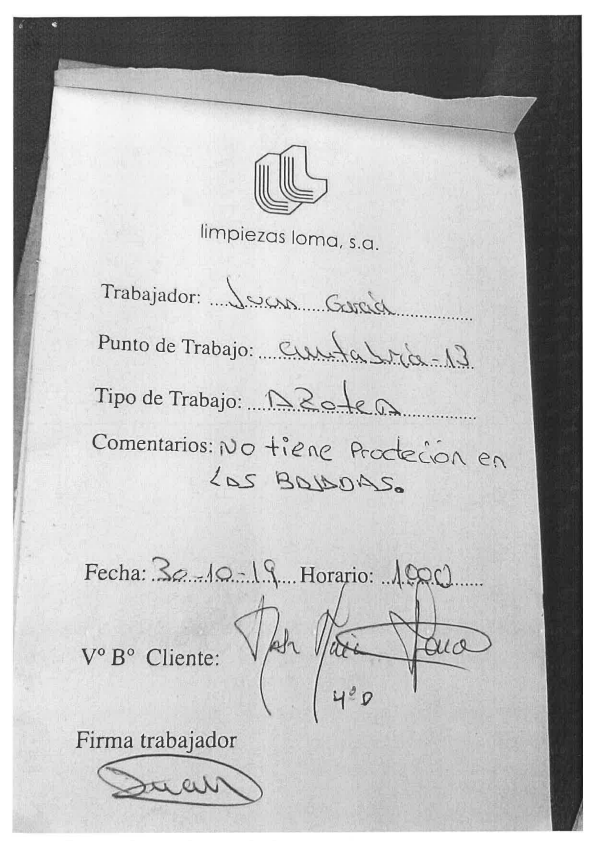 limpiezas loma, s.a.
Trabajador: Juan García
Punto de Trabajo: Cantabria-13
Tipo de Trabajo: AZoteA
Comentarios: No tiene Proteción en
LAS BAJADAS.
Fecha: 30-10-19 Horario: 1000
Vº Bº Cliente:
4º D
Firma trabajador
Juan